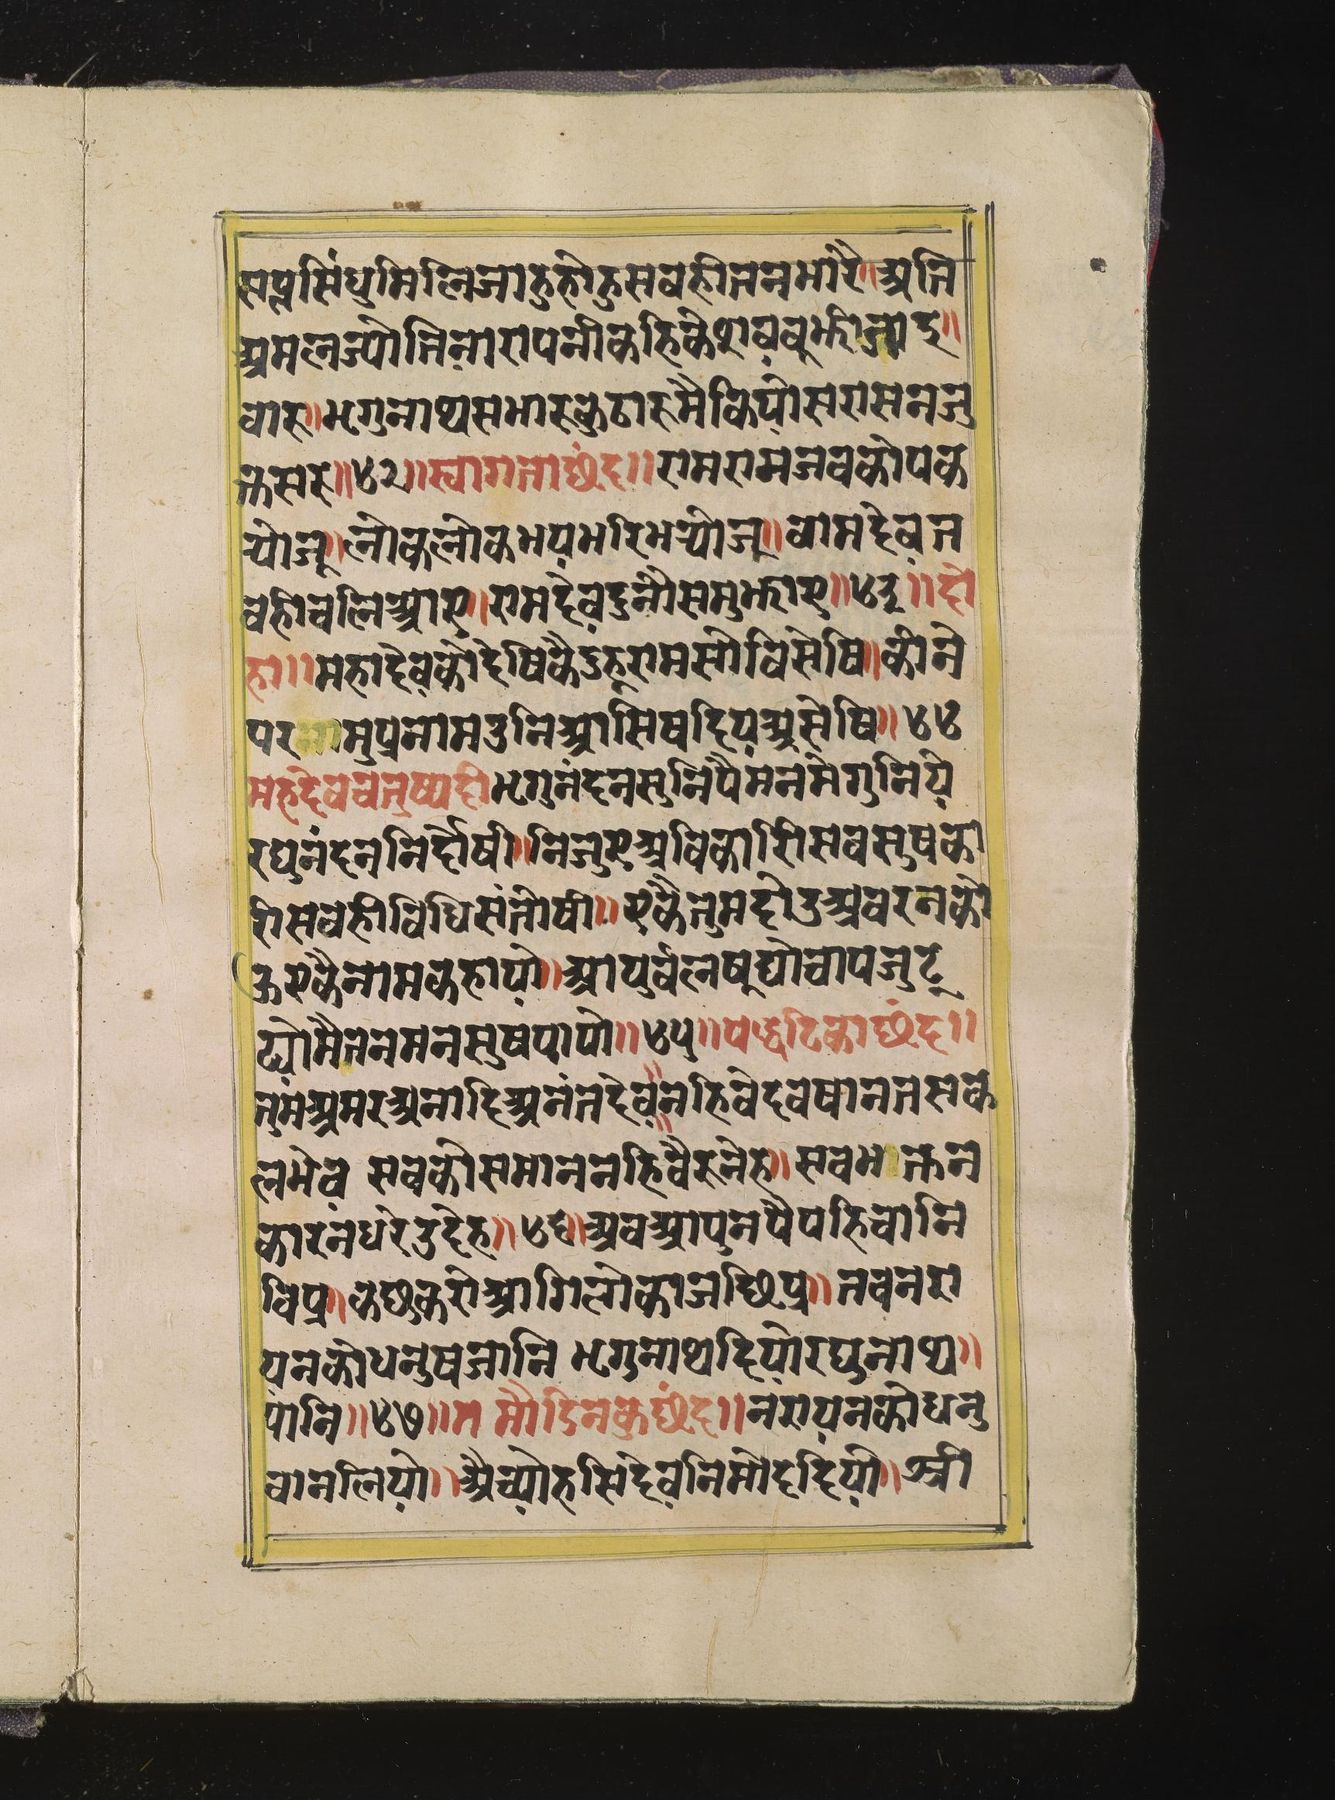 सप्तसिंधुमिलिजातुहोतुसवहीतनमारै॥अति
अमलज्योतिनारापनीकहिकेशववूझीजाइ॥
वारु॥भृगुनाथसभारुकुठारुमैकियोसरासनजु
क्तसरु॥४२॥स्वागताछंद॥रामरामजवकोपक
र्‍योजू॥लोकलोकभयभरिभर्‍योजू॥वामदेवत
वहीचलिआए॥रामदेवदुनौसमुझाए॥४३॥दो
हा॥महादेवकोदेषिकैदुहूरामसौविसेषि॥कीने
परमामुप्रनामउनिआसिषदियअसेषि॥४४
महदेवचतुष्पदीभृगुनंदनसुनियैमनमैगुनिये
रघुनंदननिर्दोषी॥निजुएअविकारिसवसुषका
रीसवहीविधिसंतोषी॥एकैतुमदोउअवरनको
ऊएकैनामकहायो॥आयुर्वलषूद्योचापजुटू
ट्योमैतनमनसुषपायो॥४५॥पद्धटिकाछंद॥
तुमअमरअनादिअनंतदेव॥नहिवेदवषानतसक
लभेव सवकोसमाननहिवैरुनेह॥सवभक्तन
कारनधरेउदेह॥४६॥अवआपुनपैपहिचानि
विप्र॥कछुकरोआगिलोकाजछिप्र॥तवनरा
यनकोधनुषजानि भृगुनाथदियोरघुनाथ॥
पानि॥४७॥त मोटिनकुछंद॥नरायनकोधनु
वानलियो॥अैच्योहसिदेवनिमोददियो॥श्री